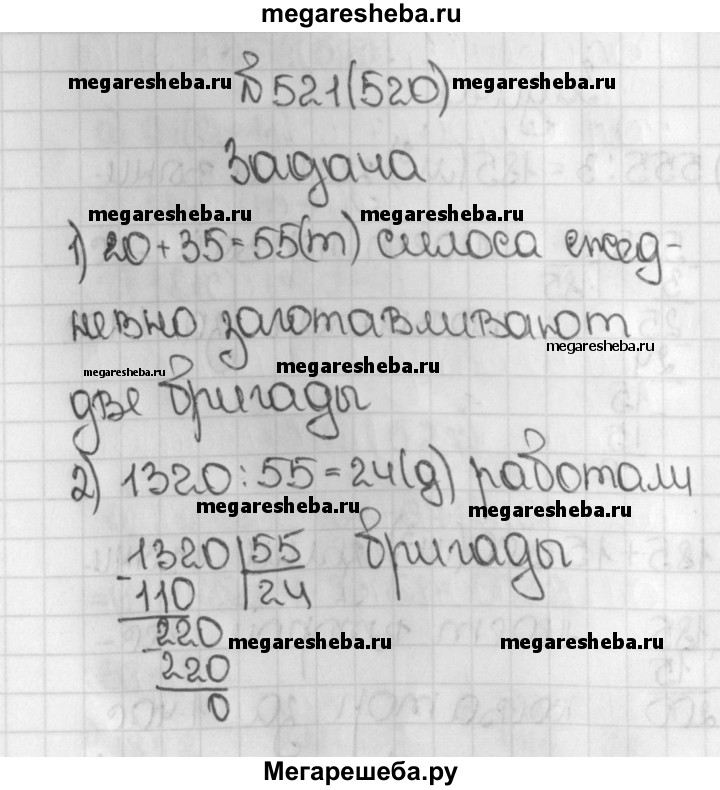 megaresheba.ru
megaresheba.ru №521(520) megaresheba.ru
Задача
megaresheba.ru megaresheba.ru
1) 20+35=55(т) силоса ежед-
невно заготавливают
megaresheba.ru
megaresheba.ru megaresheba.ru
две бригады
2) 1320:55=24(д) работали
megaresheba.ru megaresheba.ru
1320|55 бригады
-110 |24
-220
megaresheba.ru megaresheba.ru
220
0
Мегарешеба.ру